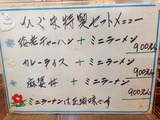 特製セットメニュー
チャーハン + ミニラーメン
900円
カレーライス + ミニラーメン
900円
麻婆丼 + ミニラーメン
900円
ミニラーメンは正油味のみ